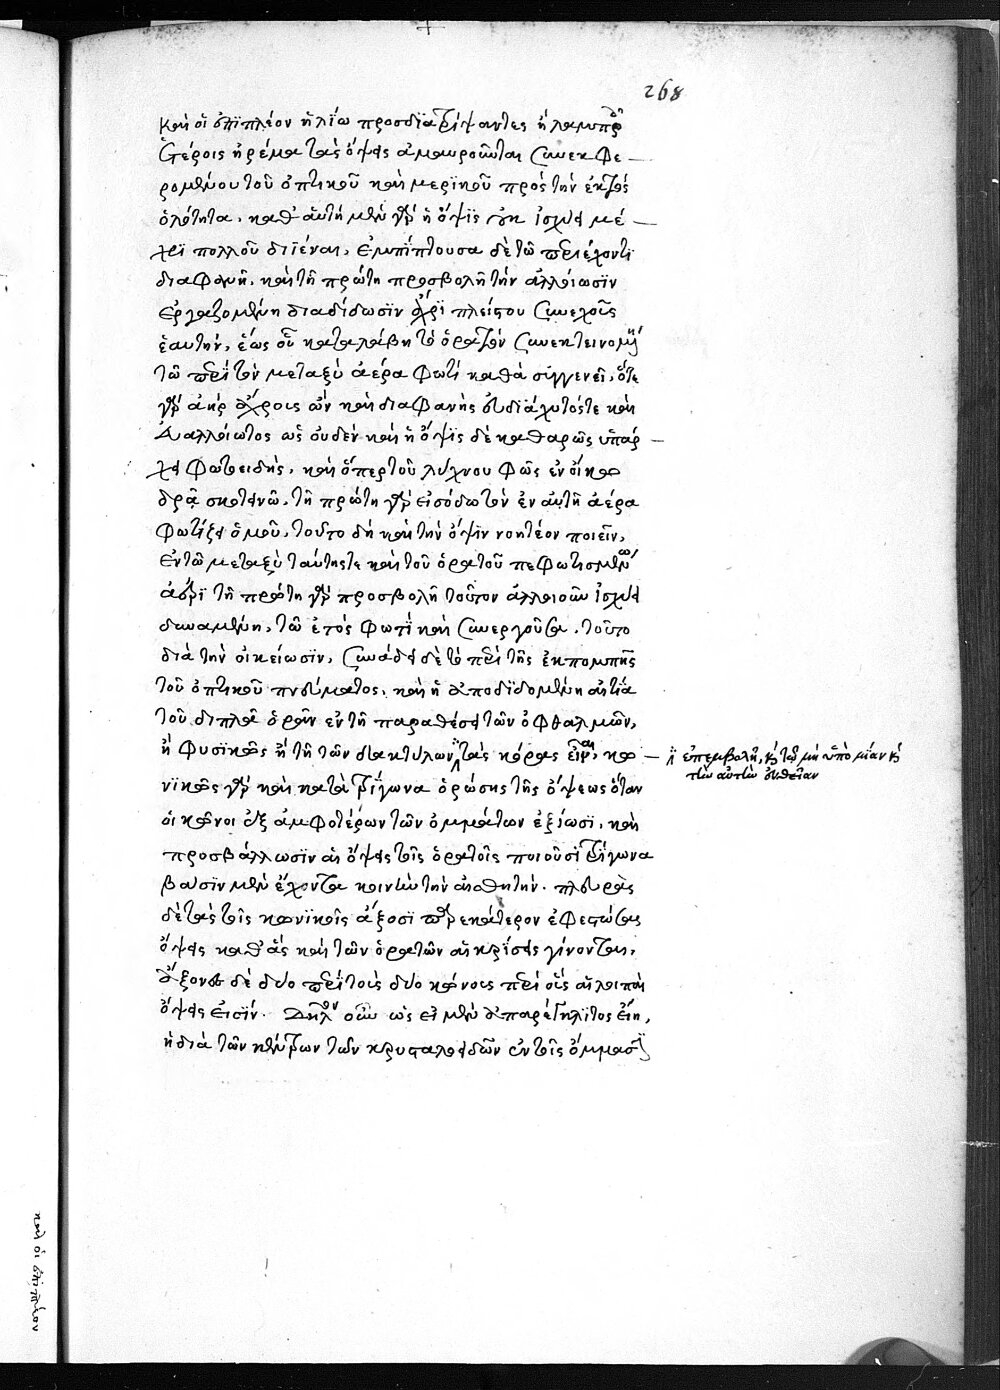 268
καὶ οἱ ἐπιπλέον ἡλίω προσδιατρίψαντες ἢ λαμπροῖς
ἑτέροις ἠρέμα τὰς ὄψεις ἀμαυροῦνται συνεκφε
ρομένου τοῦ ὀπτικοῦ καὶ μερϊκοῦ πρὸς τὴν ἐκτὸς
ὁλότητα. καθ' αὑτὴν μὲν γὰρ ἡ ὄψϊς οὐκ ἰσχύει μέ
χρϊ πολλοῦ διϊέναι, ἐμπίπτουσα δὲ τῶ περιέχοντι
διαφανῆ, καὶ τῆ πρώτη προσβολῆ τὴν ἀλλοίωσϊν
ἐργαζομένη διαδίδωσϊν ἄχρϊ πλείστου συνεχοῦς
ἑαυτήν, ἕως οὗ καταλάβη τὸ ὁρατόν συνεκτεινομένη
τῶ περὶ τὸν μεταξὺ ἀέρα φωτί καθὰ συγγενεῖ, ὅτε
γὰρ ἀὴρ ἄχροις ὢν καὶ διαφανὴς εὐδιάχυτός τε καὶ
εὐαλλοίωτος ὡς οὐδέν καὶ ἡ ὄψϊς δὲ καθαρῶς ὑπάρ
χει φωτοειδής, καὶ ὅπερ τοῦ λύχνου φῶς ἐν οἴκω
δρᾶ σκοτεινῶ, τῆ πρώτη γὰρ εἰσόδω τὸν ἐν αὐτῆ ἀέρα
φωτίζει ὁμοῦ, τοῦτο δὴ καὶ τὴν ὄψϊν νοητέον ποιεῖν,
ἐν τῶ μεταξὺ ταύτης τε καὶ τοῦ ὁρατοῦ πεφωτισμένω
ἀέρϊ τῆ πρώτη γὰρ προσβολῆ τοῦτον ἀλλοιοῦν ἰσχύει
δυναμένη, τῶ ἐκτὸς φωτὶ καὶ συνεργοῦντι. τοῦτο
διὰ τὴν οἰκείωσϊν, συνάδει δὲ τὸ περὶ τῆς ἐκπομπῆς
τοῦ ὀπτικοῦ πνεύματος, καὶ ἡ ἀποδϊδομένη αἰτία
τοῦ διπλᾶ ὁρᾶν ἐν τῆ παραθέσει τῶν ὀφθαλμῶν,
ἢ φυσϊκῶς ἢ τῆ τῶν δακτύλων τὰς κόρας εἶναι, κω
νϊκῶς γὰρ καὶ κατὰ τρίγωνα ὁρώσης τῆς ὄψεως ὅταν
οἱ κῶνοι ἐξ ἀμφοτέρων τῶν ὀμμάτων ἐξίωσϊ, καὶ
προσβάλλωσϊν αἱ ὄψεις τοῖς ὁρατοῖς ποιοῦσϊ τρίγωνα
βάσϊν μὲν ἔχοντα κοινὴν τὴν αἰσθητήν. πλευρὰς
δὲ τὰς τοῖς κωνϊκοῖς ἄξοσϊ παρ' ἑκάτερον ἐφεστώσας
ὄψεις καθ' ἃς καὶ τῶν ὁρατῶν αἱ κρίσεις γίνονται,
ἄξονες δὲ δύο περὶ τοῖς δύο κώνοις περὶ οὓς αἱ λοιπαὶ
ὄψεις εἰσϊν. Δῆλον οὖν ὡς εἰ μὲν ἀπαρέγκλιτος εἴη,
ἡ διὰ τῶν κέντρων τῶν κρυσταλοειδῶν ἐν τοῖς ὄμμασϊ
ἐπεμβολῆ, καὶ τῶ μὴ ὑπὸ μίαν καὶ
τὴν αὐτὴν εὐθεῖαν
καὶ οἱ ἐπιπλέον